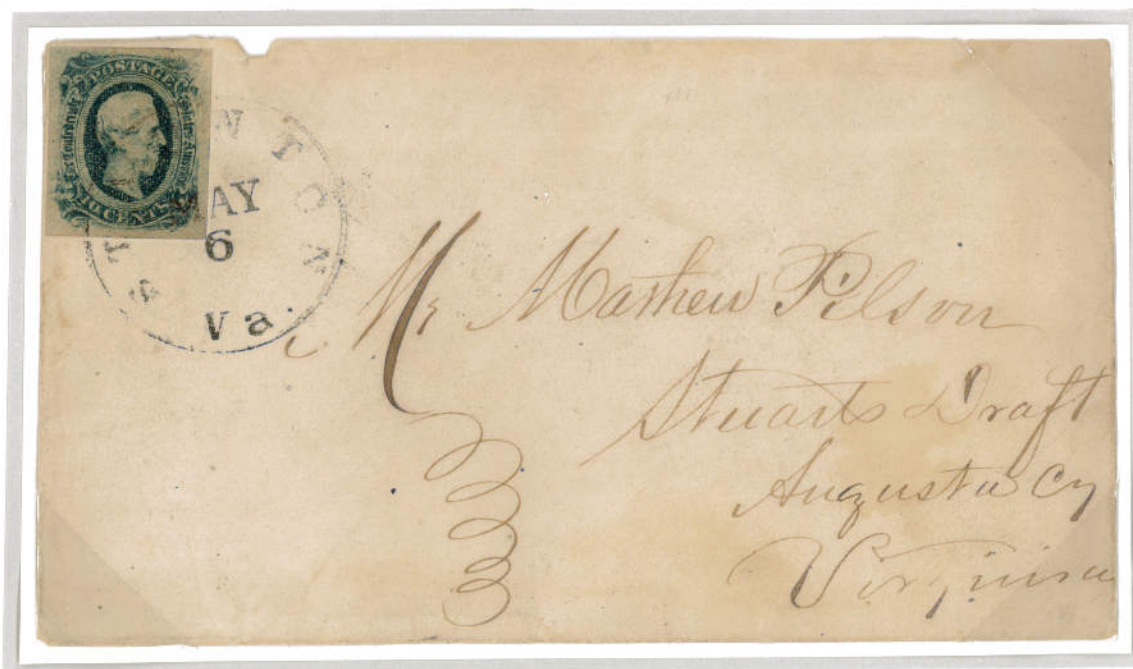 POSTAGE
10 CENTS
STAUNTON
MAY
6
Va.
Mr Mathew Pilson
Stuarts Draft
Augusta Cy
Virginia